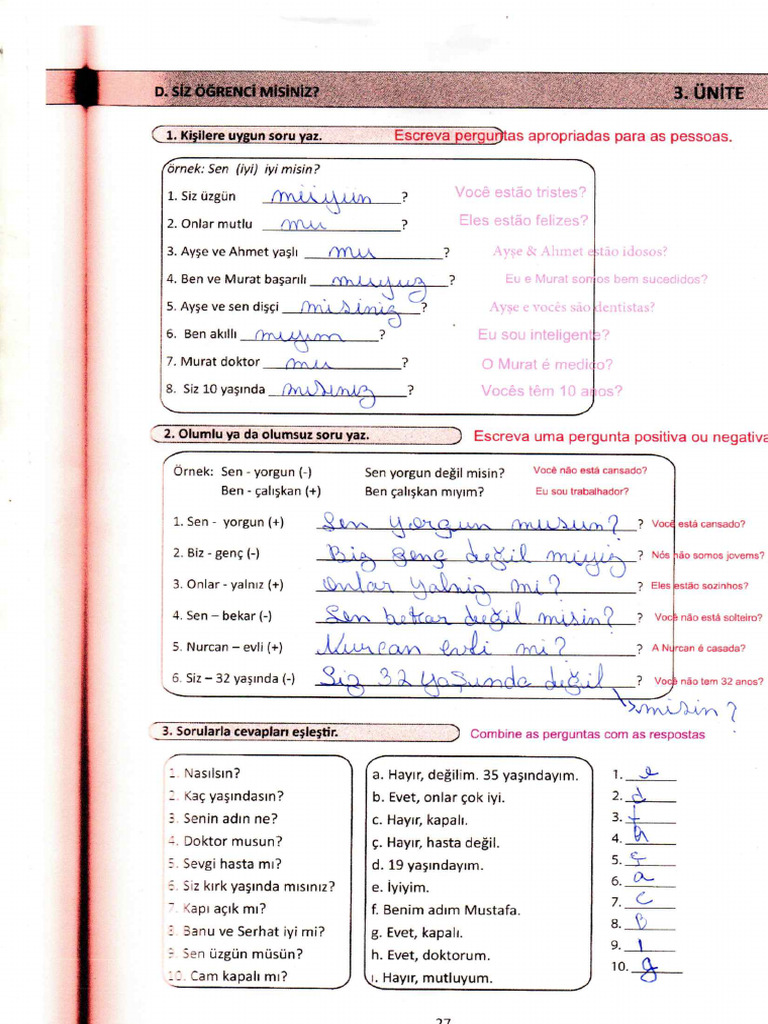 D. SİZ ÖĞRENCİ MİSİNİZ? 3. ÜNİTE
1. Kişilere uygun soru yaz. Escreva perguntas apropriadas para as pessoas.
örnek: Sen (iyi) iyi misin?
1. Siz üzgün müiyün ? Você estão tristes?
2. Onlar mutlu mu ? Eles estão felizes?
3. Ayşe ve Ahmet yaşlı mu ? Ayşe & Ahmet estão idosos?
4. Ben ve Murat başarılı muyuz ? Eu e Murat somos bem sucedidos?
5. Ayşe ve sen dişçi misiniz ? Ayşe e vocês são dentistas?
6. Ben akıllı miyim ? Eu sou inteligente?
7. Murat doktor mu ? O Murat é medico?
8. Siz 10 yaşında misiniz ? Vocês têm 10 anos?
2. Olumlu ya da olumsuz soru yaz. Escreva uma pergunta positiva ou negativa
Örnek: Sen - yorgun (-) Sen yorgun değil misin? Você não está cansado?
Ben - çalışkan (+) Ben çalışkan mıyım? Eu sou trabalhador?
1. Sen - yorgun (+) Sen yorgun musun? ? Você está cansado?
2. Biz - genç (-) Biz genç değil miyiz ? Nós não somos jovems?
3. Onlar - yalnız (+) onlar yalniz mi? ? Eles estão sozinhos?
4. Sen – bekar (-) Sen bekar değil misin? ? Você não está solteiro?
5. Nurcan – evli (+) Nurcan evli mi? ? A Nurcan é casada?
6. Siz – 32 yaşında (-) Siz 32 yaşında değil ? Você não tem 32 anos?
misin?
3. Sorularla cevapları eşleştir. Combine as perguntas com as respostas
1. Nasılsın? a. Hayır, değilim. 35 yaşındayım. 1. e
2. Kaç yaşındasın? b. Evet, onlar çok iyi. 2. d
3. Senin adın ne? c. Hayır, kapalı. 3. f
4. Doktor musun? ç. Hayır, hasta değil. 4. h
5. Sevgi hasta mı? d. 19 yaşındayım. 5. ç
6. Siz kırk yaşında mısınız? e. İyiyim. 6. a
7. Kapı açık mı? f. Benim adım Mustafa. 7. c
8. Banu ve Serhat iyi mi? g. Evet, kapalı. 8. B
9. Sen üzgün müsün? h. Evet, doktorum. 9. ı
10. Cam kapalı mı? ı. Hayır, mutluyum. 10. g
27